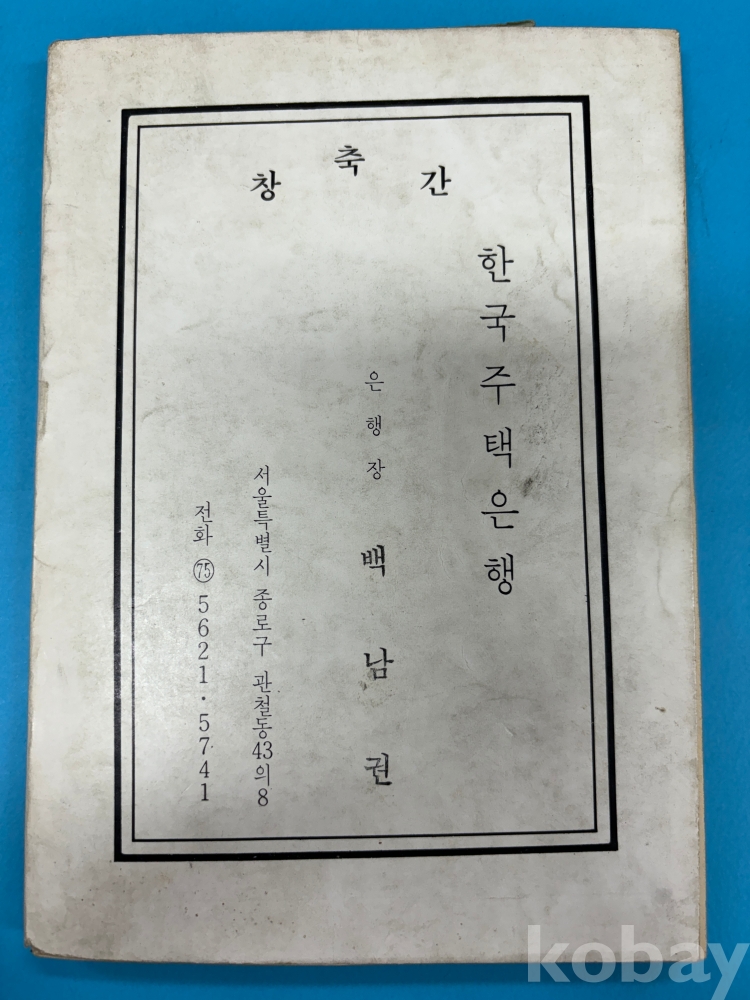 축
창 간
한국주택은행
은행장 백남권
서울특별시 종로구 관철동43의8
전화 ㊆5621·5741
kobay